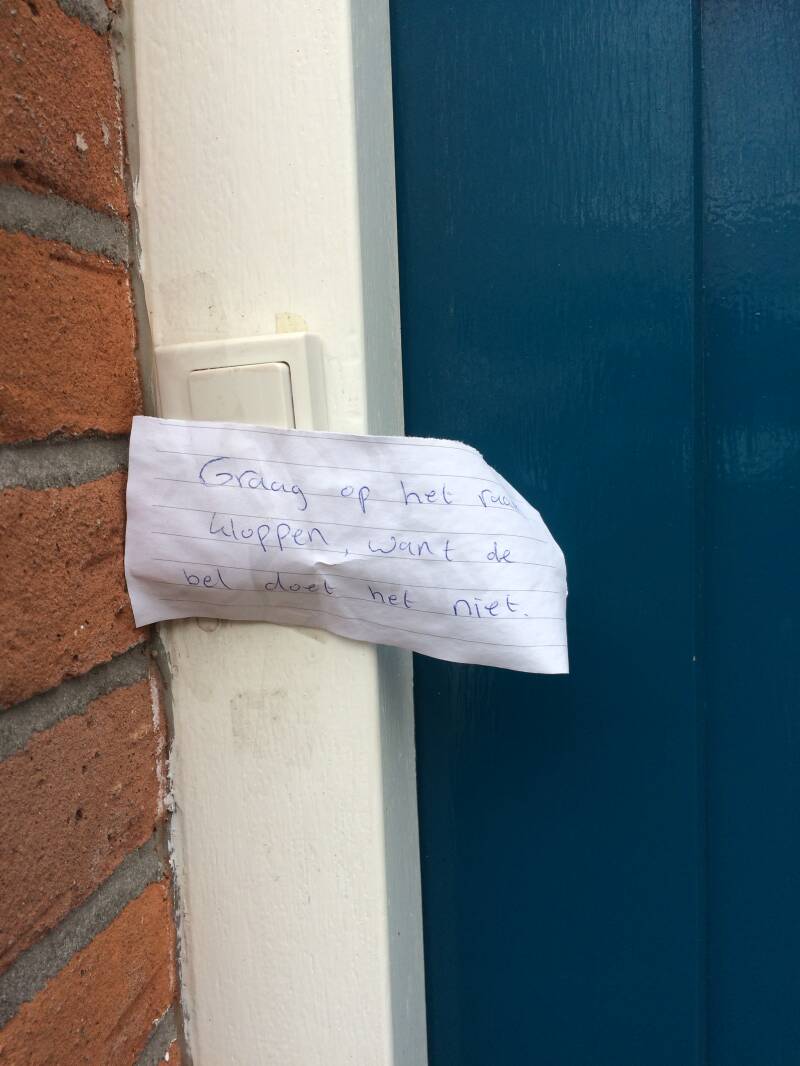 Graag op het raam
kloppen, want de
bel doet het niet.